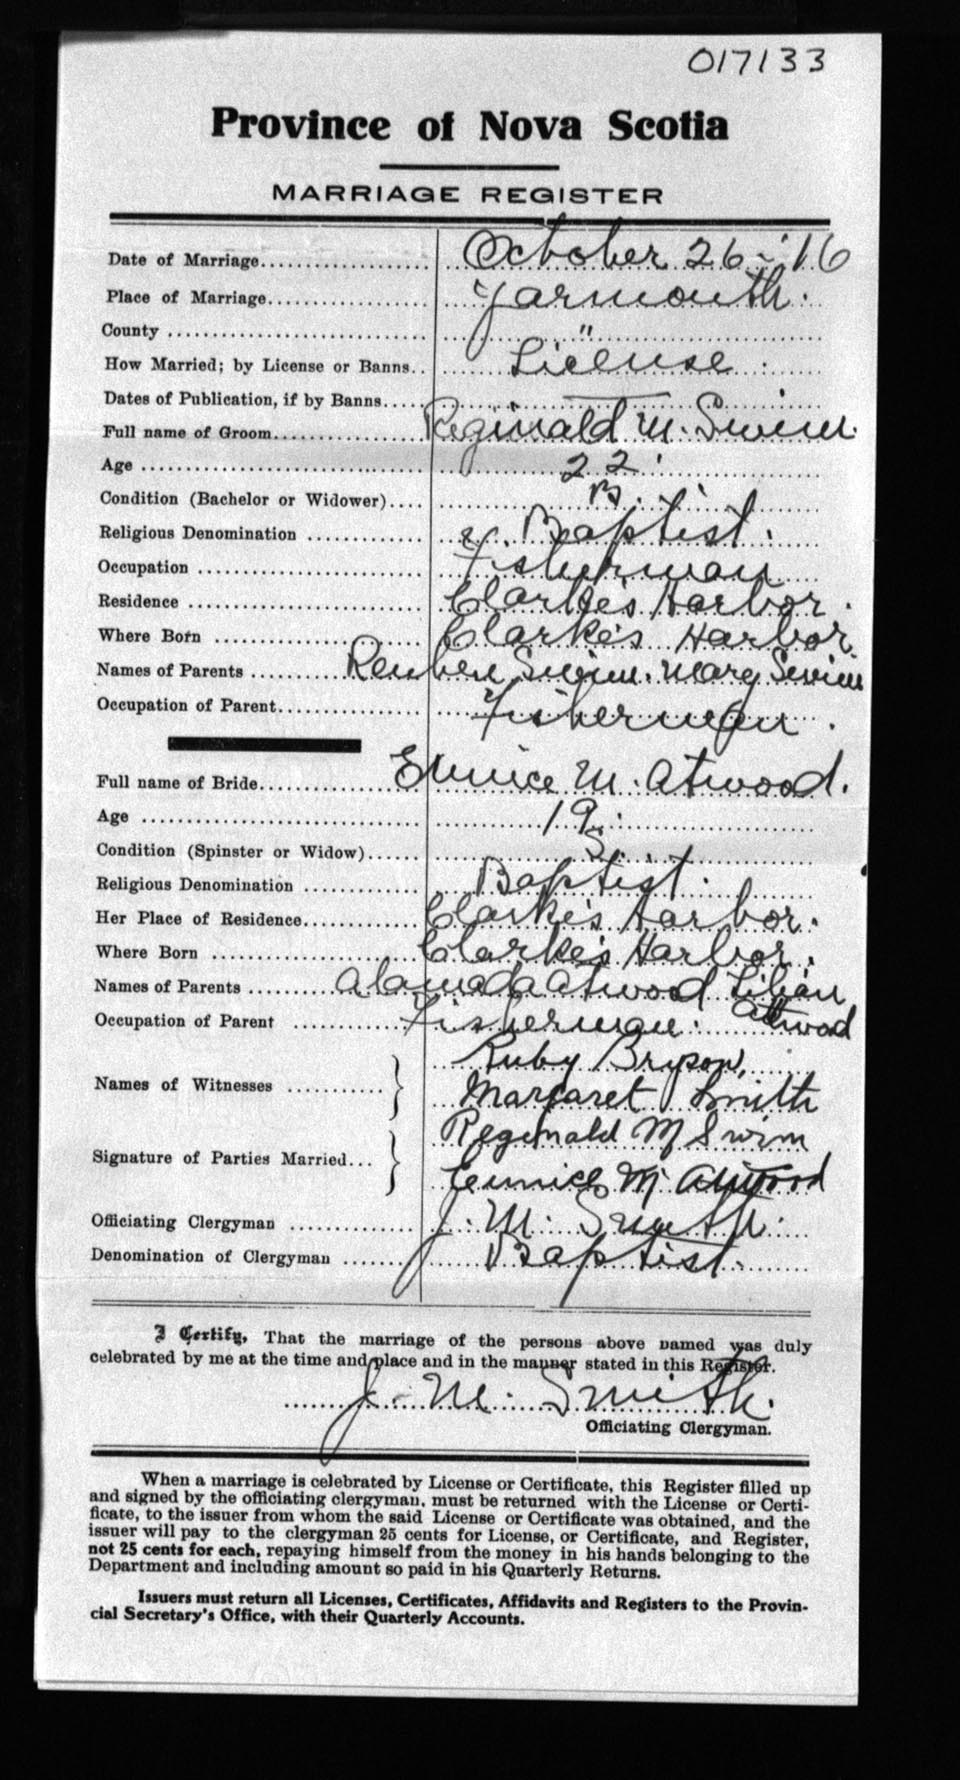 017133
Province of Nova Scotia
MARRIAGE REGISTER
Date of Marriage.................... October 26 - '16
Place of Marriage.................... Yarmouth.
County .................... "
How Married; by License or Banns.. License.
Dates of Publication, if by Banns..... —
Full name of Groom.................... Reginald M. Swim.
Age .................... 22.
Condition (Bachelor or Widower).... B.
Religious Denomination ............. Baptist.
Occupation .................... Fisherman
Residence .................... Clarke's Harbor.
Where Born .................... Clarke's Harbor.
Names of Parents .......... Reuben Swim. Mary Swim
Occupation of Parent.................. Fisherman.
Full name of Bride.................... Eunice M. Atwood.
Age .................... 19.
Condition (Spinster or Widow)...... S.
Religious Denomination ............. Baptist.
Her Place of Residence............. Clarke's Harbor.
Where Born .................... Clarke's Harbor.
Names of Parents .......... Alamada Atwood Lilian
Atwood
Occupation of Parent ............. Fisherman.
Ruby
Names of Witnesses ............
Margaret Smith
Reginald M Swim
Signature of Parties Married...
Eunice M. Atwood
Officiating Clergyman ............. J. M. Smith.
Denomination of Clergyman ....... Baptist.
I Certify, That the marriage of the persons above named was duly
celebrated by me at the time and place and in the manner stated in this Register.
J. M. Smith.
Officiating Clergyman.
When a marriage is celebrated by License or Certificate, this Register filled up
and signed by the officiating clergyman, must be returned with the License or Certi-
ficate, to the issuer from whom the said License or Certificate was obtained, and the
issuer will pay to the clergyman 25 cents for License, or Certificate, and Register,
not 25 cents for each, repaying himself from the money in his hands belonging to the
Department and including amount so paid in his Quarterly Returns.
Issuers must return all Licenses, Certificates, Affidavits and Registers to the Provin-
cial Secretary's Office, with their Quarterly Accounts.